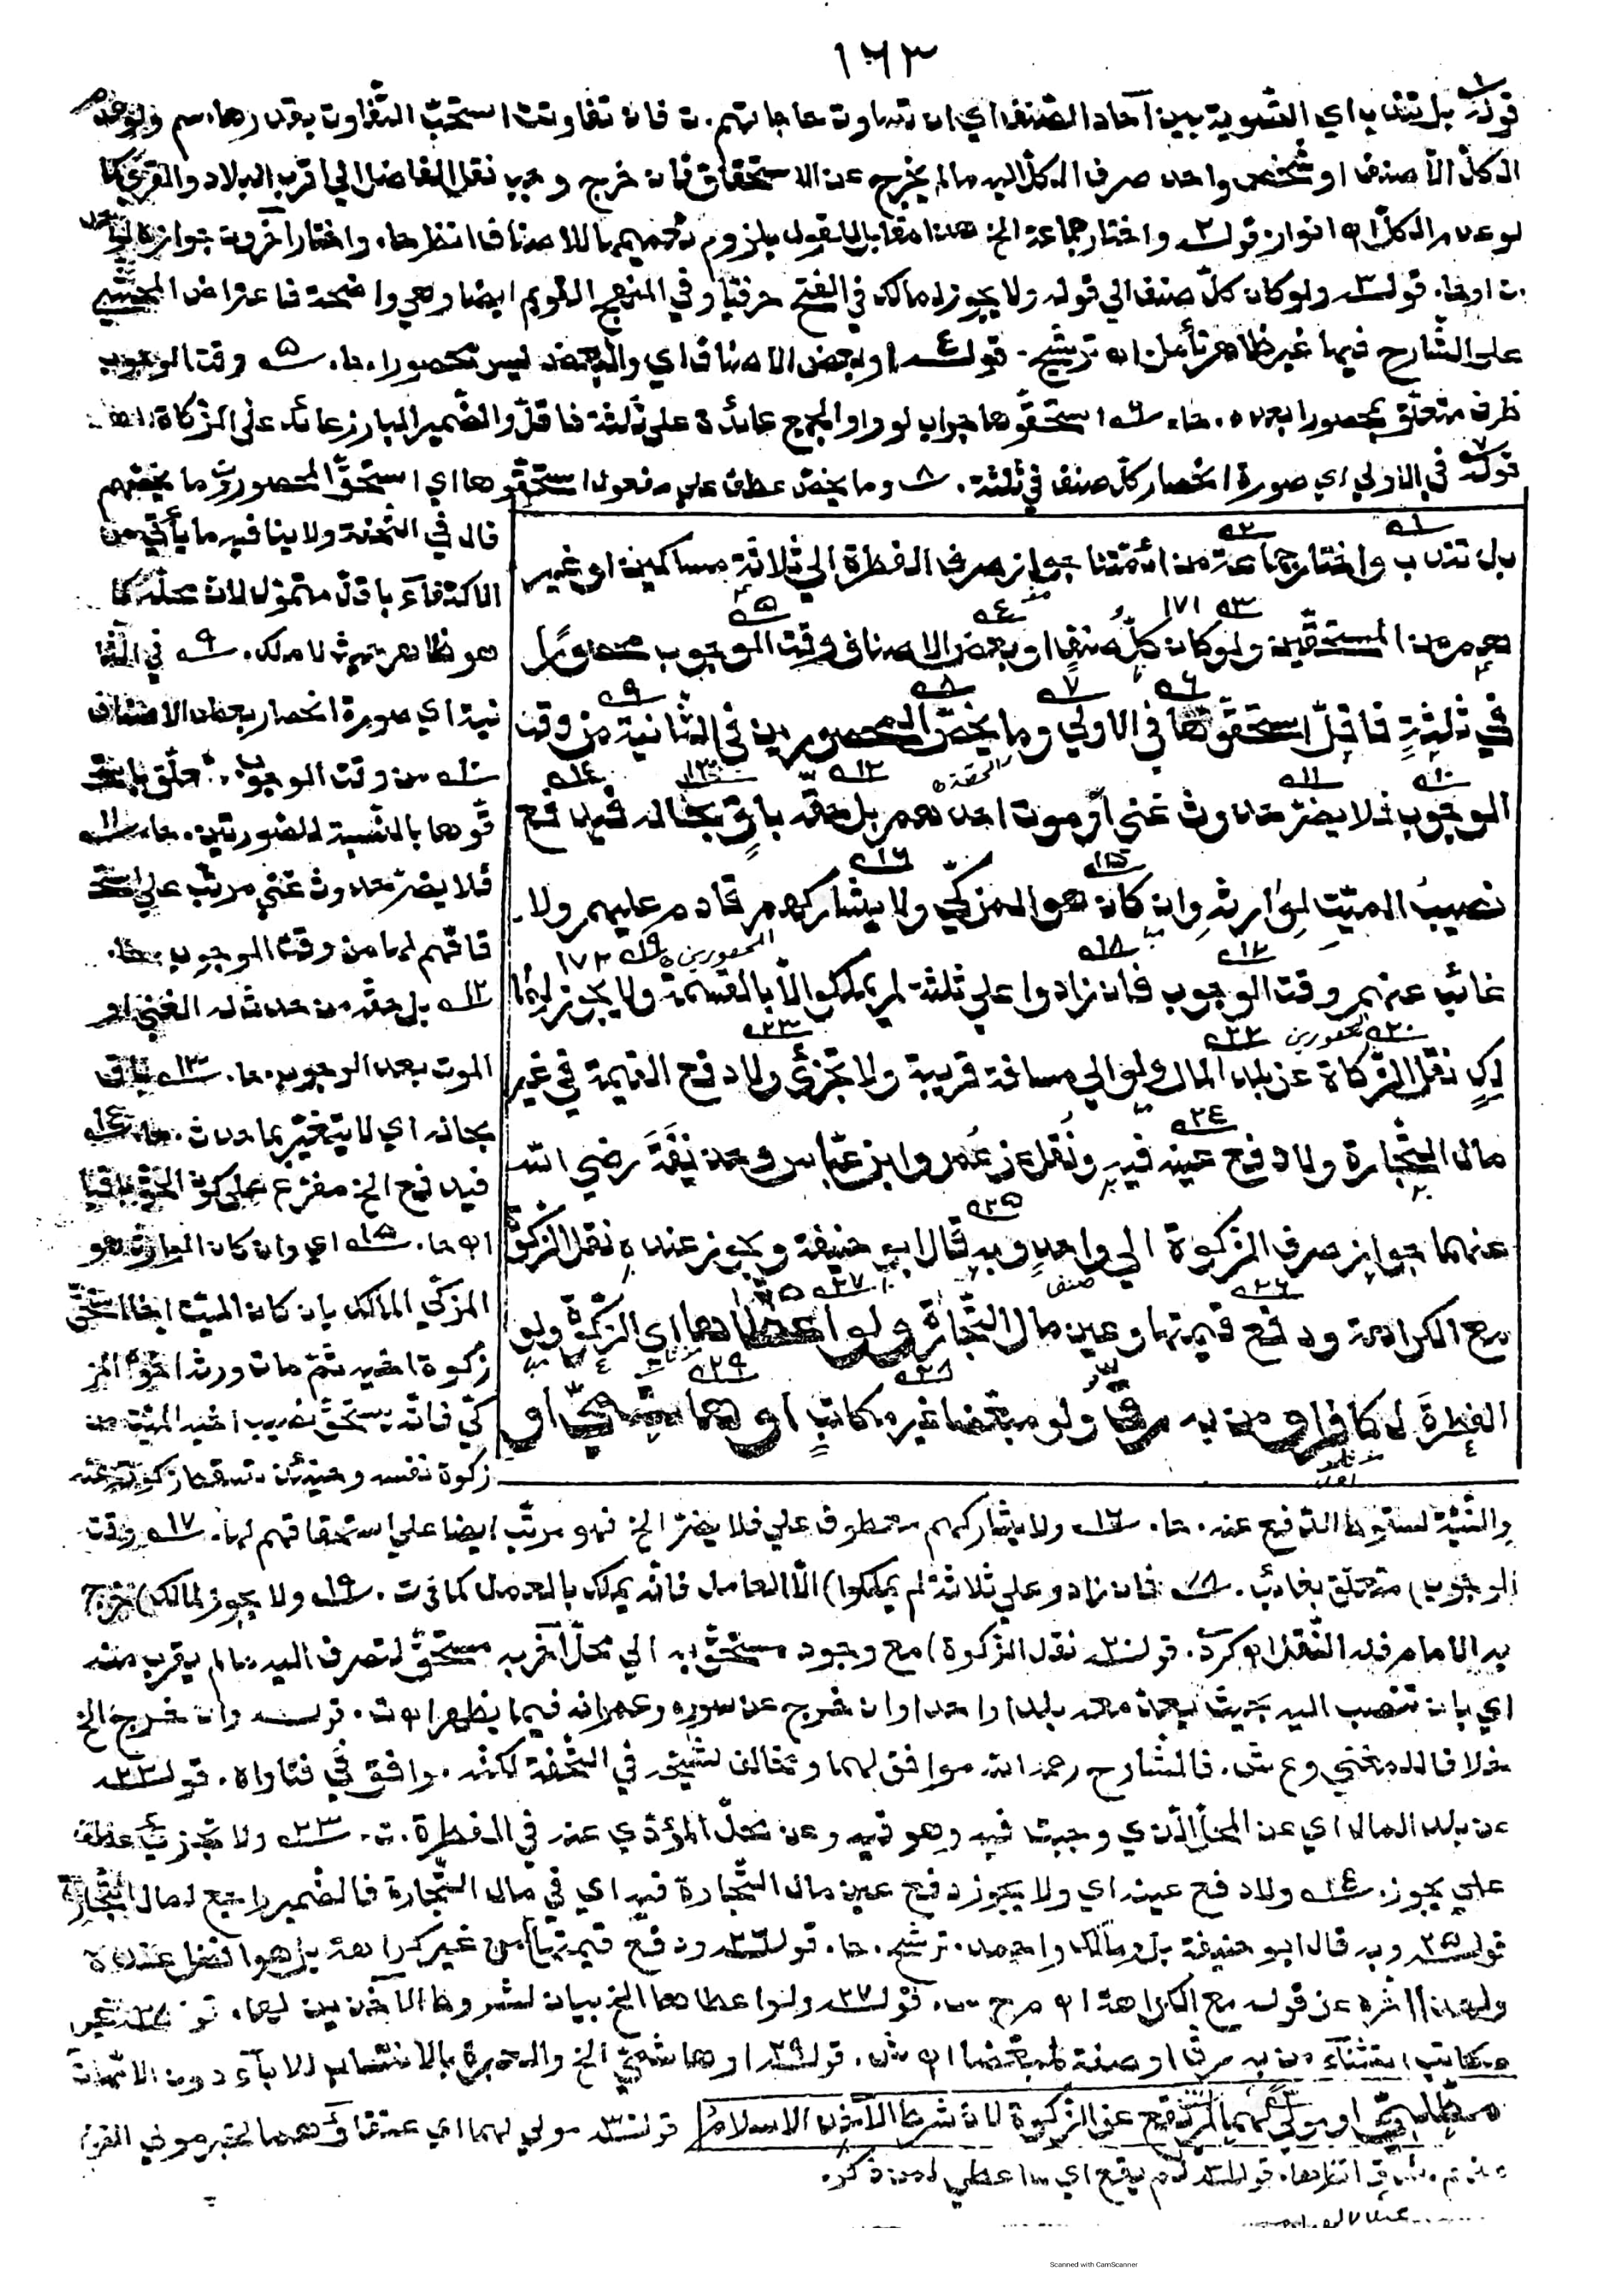 ١٦٣
قوله بل تندب اي التسوية بين آحاد الصنف اي ان تساوت حاجاتهم. ت فان تفاوتت استحب التفاوت بقدرها. سم ولو
الكل الا صنف او شخص واحد صرف الكل اليه ما لم يخرج عن الاستحقاق فان خرج وجب نقل الفاضل الي اقرب البلاد والقري كما
لو عدم الكل اه انوار قوله٢ واختار جماعة الخ هذا مقابل القول بلزوم تعميمهم بالاصناف انظر حا. واختار آخرون جوازه
قوله٣ ولو كان كل صنف الي قوله ولا يجوز لمالك في الفتح حرفيا وفي المنهج القويم ايضا وهي واضحة فاعتراض المحشي
علي الشارح فيها غير ظاهر تأمل اه ترشيح. قوله٤ او بعض الاصناف اي والبعض ليس محصورا. حا. ٥ وقت الوجوب
ظرف متعلق بمحصورا بعده. حا. ٦ استحقوها جواب لو واو الجمع عائدة علي ثلثة فاقل والضمير البارز عائد علي الزكاة
قوله٧ في الاولي اي صورة انحصار كل صنف في ثلثة. ٨ وما يخص عطف علي مفعول استحقوها اي استحق المحصورون ما يخصهم
بل تندب واختار جماعة من ائمتنا جواز صرف الفطرة الي ثلاثة مساكين او غير
هم من المستحقين ولو كان كل صنف او بعض الاصناف وقت الوجوب محصورا
في ثلثة فاقل استحقوها في الاولي وما يخص المحصورين في الثانية من وقت
الوجوب فلا يضر حدوث غني او موت احدهم بل حقه باق بحاله فيدفع
نصيب الميت لوارثه وان كان هو المزكي ولا يشاركهم قادم عليهم ولا
غائب عنهم وقت الوجوب فان زادوا علي ثلثة لم يملكوا الا بالقسمة ولا يجوز لما
لك نقل الزكاة عن بلد المال ولو الي مسافة قريبة ولا تجزئ ولا دفع القيمة في غير
مال التجارة ولا دفع عينه فيه ونقل عن عمر وابن عباس وحذيفة رضي الله
عنهما جواز صرف الزكوة الي واحد وبه قال ابو حنيفة ويجوز عنده نقل الزكوة
مع الكراهة ودفع قيمتها وعين مال التجارة ولو اعطاها اي الزكوة ولو
الفطرة لكافر او من به رق ولو مبعضا غير مكاتب او هاشمي او
قال في التحفة ولا ينافيه ما يأتي من
الاكتفاء باقل متمول لان محله كما
هو ظاهر حيث لا ملك. ٩ في الثا
نية اي صورة انحصار بعض الاصناف
١٠ من وقت الوجوب. متعلق باستحـ
قوها بالنسبة للصورتين. حا. ١١
فلا يضر حدوث غني مرتب علي استحـ
قاقهم لها من وقت الوجوب. حا.
١٢ بل حقه من حدث له الغني او
الموت بعد الوجوب. حا. ١٣ باق
بحاله اي لا يتغير بما حدث. حا. ١٤
فيدفع الخ مفرع علي كون الحق باقيا
اه حا. ١٥ اي وان كان الوارث هو
المزكي المالك بان كان الميت اخا استحق
زكوة اخيه ثم مات وورثه اخوه المز
كي فانه يستحق نصيب اخيه الميت من
زكوة نفسه وحينئذ تسقط زكوته عنه
والنية لسقوط الدفع عنه. حا. ١٦ ولا يشاركهم معطوف علي فلا يضر الخ فهو مرتب ايضا علي استحقاقهم لها. ١٧ وقت
الوجوب) متعلق بغائب. ١٨ فان زادو علي ثلاثة لم يملكوا) الا العامل فانه يملك بالعمل كما في ت. ١٩ ولا يجوز لمالك) خرج
به الامام فله النقل اه كردي. قوله٢٠ نقل الزكوة) مع وجود مستحق به الي محل آخر به مستحق لتصرف اليه ما لم يقرب منه
اي بان تنصب اليه بحيث يعد معه بلدا واحدا وان خرج عن سوره وعمرانه فيما يظهر اه ت. قوله وان خرج الخ
خلافا للمغني وع ش. فالشارح رحمه الله موافق لهما ومخالف لشيخه في التحفة لكنه. وافق في فتاواه. قوله٢٢
عن بلد المال اي عن المحل الذي وجبت فيه وهو فيه وعن محل المؤدي عنه في الفطرة. ت. ٢٣ ولا تجزئ عطف
علي يجوز. ٢٤ ولا دفع عينه اي ولا يجوز دفع عين مال التجارة فيه اي في مال التجارة فالضمير راجع لمال التجارة
قوله٢٥ وبه قال ابو حنيفة بل ومالك واحمد. ترشيح. حا. قوله٢٦ ودفع قيمتها) من غير كراهة بل هو افضل عنده
ولهذا اخره عن قوله مع الكراهة اه م ح. قوله٢٧ ولو اعطاها الخ بيان لشروط الآخذين لها. قوله٢٨ غير
مكاتب استثناء من به رق او صفة لمبعضا اه ش. قوله٢٩ او هاشمي الخ والعبرة بالانتساب للآباء دون الامهات
مطلبي او مولي لهما لم يقع عن الزكوة لان شرط الآخذ الاسلام قوله٣٠ مولي لهما اي عتقاؤهما لخبر مولي القوم
منهم. قوله لم يقع اي ما اعطي لمن ذكر.
Scanned with CamScanner